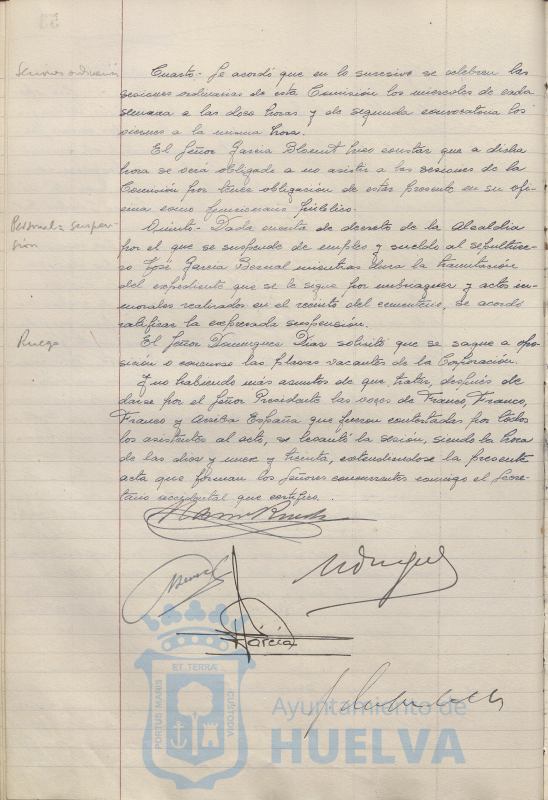 Sesiones ordinarias
Cuarto.- Se acordó que en lo sucesivo se celebren las
sesiones ordinarias de esta Comisión los miercoles de cada
semana a las doce horas y de segunda convocatoria los
viernes a la misma hora.
El Señor Garcia hizo constar que a dicha
hora se verá obligado a no asistir a las sesiones de la
Comisión por tener obligación de estar presente en su ofi-
cina como funcionario público.
Personal= suspen-
sión
Quinto.- Dada cuenta de decreto de la Alcaldia
por el que se suspende de empleo y sueldo al sepulture-
ro José Garcia Bernal mientras dura la tramitación
del expediente que se le sigue por embriaguez y actos in-
morales realizados en el recinto del cementerio, se acordó
ratificar la expresada suspensión.
Ruego
El Señor Dominguez Diaz solicitó que se saque a opo-
sición o concurso las plazas vacantes de la Corporación.
Y no habiendo más asuntos de que tratar, después de
darse por el Señor Presidente las voces de Franco, Franco,
Franco y Arriba España que fueron contestadas por todos
los asistentes al acto, se levantó la sesión, siendo la hora
de las diez y nueve y treinta, extendiendose la presente
acta que firman los Señores concurrentes conmigo el Secre-
tario accidental que certifico.
Garcia
PORTUS MARIS
ET TERRÆ
CUSTODIA
Ayuntamiento de
HUELVA